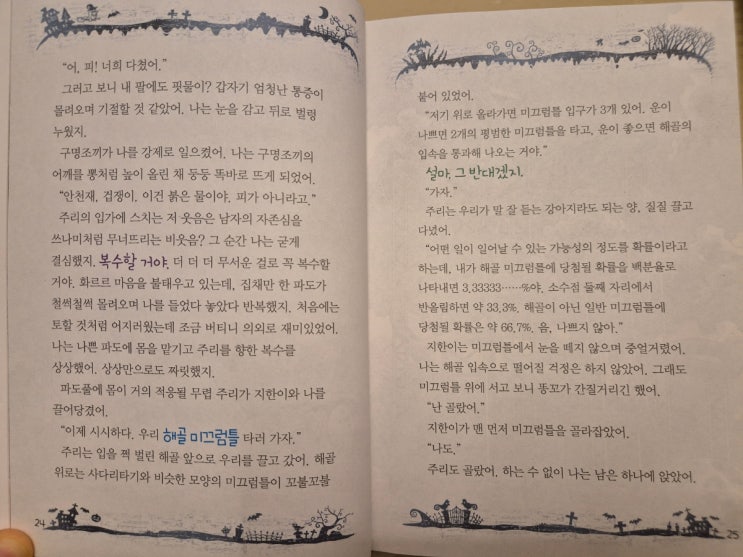 “어, 피! 너희 다쳤어.”
그러고 보니 내 팔에도 핏물이? 갑자기 엄청난 통증이
몰려오며 기절할 것 같았어. 나는 눈을 감고 뒤로 벌렁
누웠지.
구명조끼가 나를 강제로 일으켰어. 나는 구명조끼의
어깨를 뽕처럼 높이 올린 채 둥둥 똑바로 뜨게 되었어.
“안천재, 겁쟁이. 이건 붉은 물이야. 피가 아니라고.”
주리의 입가에 스치는 저 웃음은 남자의 자존심을
쓰나미처럼 무너뜨리는 비웃음? 그 순간 나는 굳게
결심했지. 복수할 거야. 더 더 더 무서운 걸로 꼭 복수할
거야. 화르르 마음을 불태우고 있는데, 집채만 한 파도가
철썩철썩 몰려오며 나를 들었다 놓았다 반복했지. 처음에는
토할 것처럼 어지러웠는데 조금 버티니 의외로 재미있었어.
나는 나쁜 파도에 몸을 맡기고 주리를 향한 복수를
상상했어. 상상만으로도 짜릿했지.
파도풀에 몸이 거의 적응될 무렵 주리가 지한이와 나를
끌어당겼어.
“이제 시시하다. 우리 해골 미끄럼틀 타러 가자.”
주리는 입을 쩍 벌린 해골 앞으로 우리를 끌고 갔어. 해골
위로는 사다리타기와 비슷한 모양의 미끄럼틀이 꼬불꼬불
24
붙어 있었어.
“저기 위로 올라가면 미끄럼틀 입구가 3개 있어. 운이
나쁘면 2개의 평범한 미끄럼틀을 타고, 운이 좋으면 해골의
입속을 통과해 나오는 거야.”
설마, 그 반대겠지.
“가자.”
주리는 우리가 말 잘 듣는 강아지라도 되는 양, 질질 끌고
다녔어.
“어떤 일이 일어날 수 있는 가능성의 정도를 확률이라고
하는데, 내가 해골 미끄럼틀에 당첨될 확률을 백분율로
나타내면 3.33333……%야. 소수점 둘째 자리에서
반올림하면 약 33.3%. 해골이 아닌 일반 미끄럼틀에
당첨될 확률은 약 66.7%. 음, 나쁘지 않아.”
지한이는 미끄럼틀에서 눈을 떼지 않으며 중얼거렸어.
나는 해골 입속으로 떨어질 걱정은 하지 않았어. 그래도
미끄럼틀 위에 서고 보니 똥꼬가 간질거리긴 했어.
“난 골랐어.”
지한이가 맨 먼저 미끄럼틀을 골라잡았어.
“나도.”
주리도 골랐어. 하는 수 없이 나는 남은 하나에 앉았어.
25